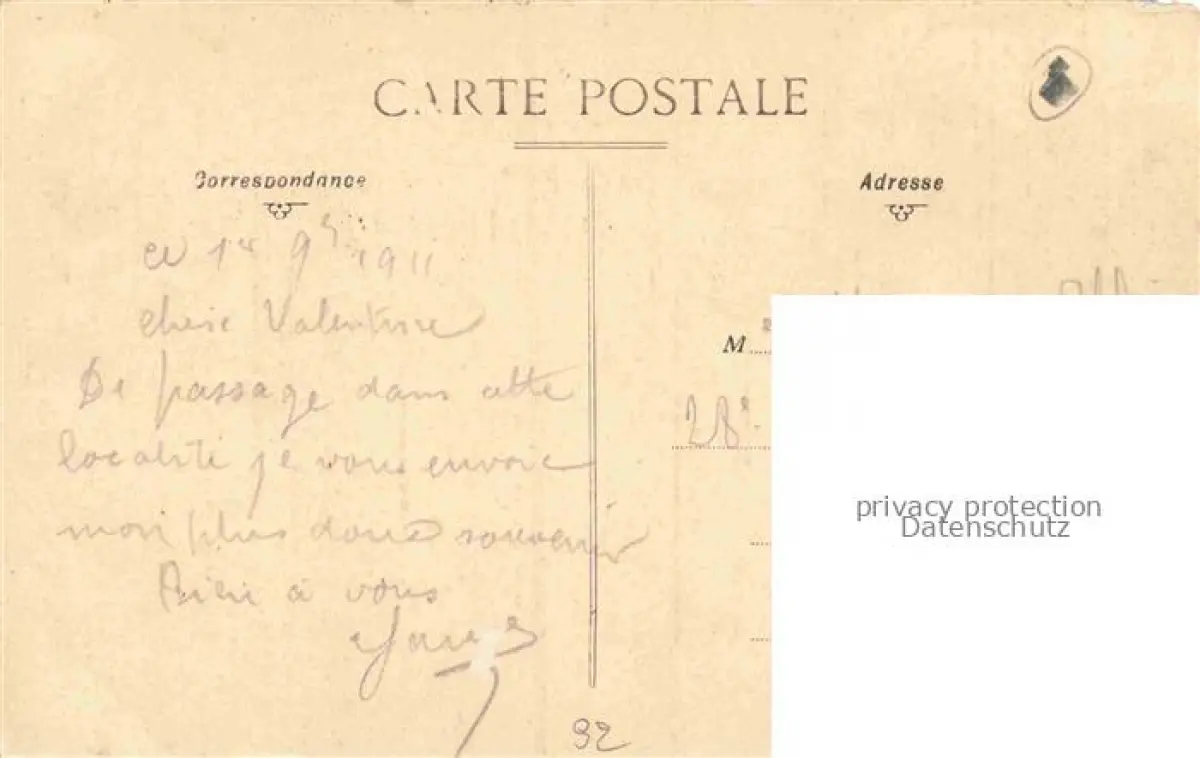 CARTE POSTALE
Correspondance
Adresse
ce 1er 9b 1911
chère Valentine
De passage dans cette
M
28e
localité je vous envoie
mon plus doux souvenir
Bien à vous
privacy protection
Datenschutz
92